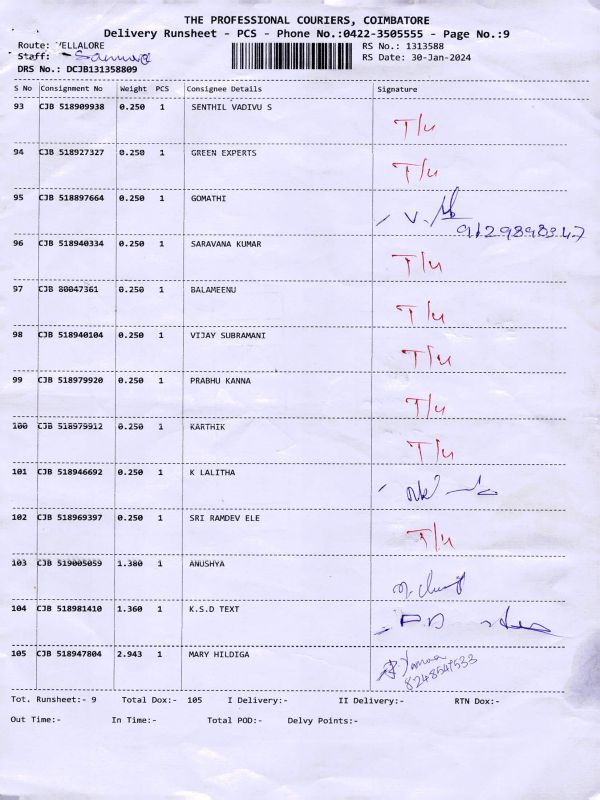 THE PROFESSIONAL COURIERS, COIMBATORE
Delivery Runsheet - PCS - Phone No.:0422-3505555 - Page No.:9
Route: VELLALORE RS No.: 1313588
Staff: RS Date: 30-Jan-2024
DRS No.: DCJB131358809
S No Consignment No Weight PCS Consignee Details Signature
93 CJB 518909938 0.250 1 SENTHIL VADIVU S
T/U
94 CJB 518927327 0.250 1 GREEN EXPERTS
T/U
95 CJB 518897664 0.250 1 GOMATHI
96 CJB 518940334 0.250 1 SARAVANA KUMAR
T/U
97 CJB 80047361 0.250 1 BALAMEENU
T/U
98 CJB 518940104 0.250 1 VIJAY SUBRAMANI
T/U
99 CJB 518979920 0.250 1 PRABHU KANNA
T/U
100 CJB 518979912 0.250 1 KARTHIK
T/U
101 CJB 518946692 0.250 1 K LALITHA
102 CJB 518969397 0.250 1 SRI RAMDEV ELE
T/U
103 CJB 519005059 1.380 1 ANUSHYA
104 CJB 518981410 1.360 1 K.S.D TEXT
105 CJB 518947804 2.943 1 MARY HILDIGA
8248547533
Tot. Runsheet:- 9 Total Dox:- 105 I Delivery:- II Delivery:- RTN Dox:-
Out Time:- In Time:- Total POD:- Delvy Points:-